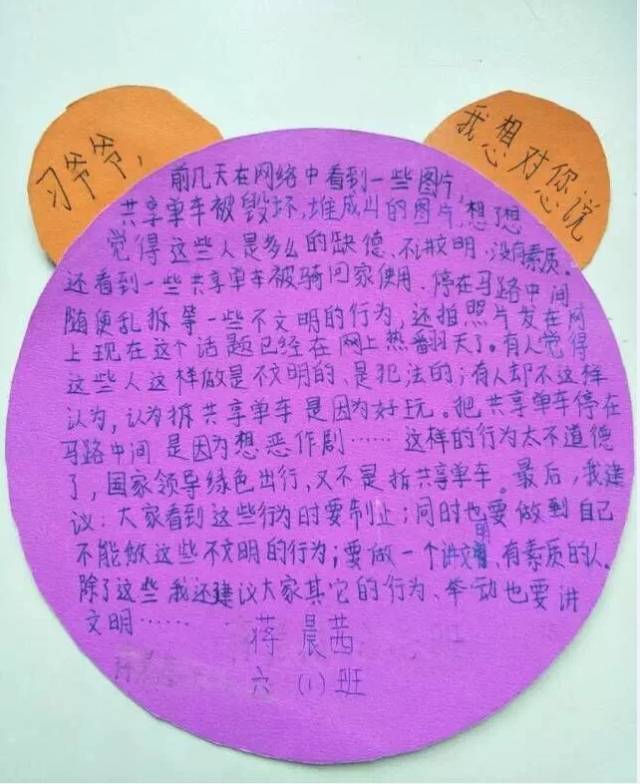 习爷爷，
我想对您说
前几天在网络中看到一些图片，
共享单车被毁坏，堆成山的图片，想了想
觉得这些人是多么的缺德、不讲文明、没有素质。
还看到一些共享单车被骑回家使用、停在马路中间
随便乱拆等一些不文明的行为，还拍照片发在网
上现在这个话题已经在网上热翻天了。有人觉得
这些人这样做是不文明的、是犯法的；有人却不这样
认为，认为拆共享单车是因为好玩。把共享单车停在
马路中间是因为想恶作剧……这样的行为太不道德
了，国家领导绿色出行，又不是拆共享单车。最后，我建
议：大家看到这些行为时要制止；同时也要做到自己
不能做这些不文明的行为；要做一个讲文明、有素质的人。
除了这些我还建议大家其它的行为、举动也要讲
文明……
蒋晨茜
六（1）班